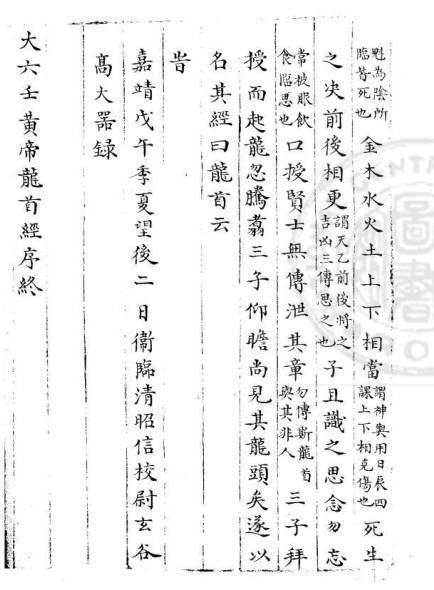 魁為陰所
臨皆死也
金木水火土上下相當
謂神與用日辰四
課上下相克傷也
死生
之决前後相更
謂天乙前後將之
吉凶三傳思之也
子且識之思念勿忘
常披服飲
食臨思也
口授賢士無傳泄其章
勿傳斯龍首
與其非人
三子拜
授而起龍忽騰翥三子仰瞻尚見其龍頭矣遂以
名其經曰龍首云
旹
嘉靖戊午季夏望後二日衞臨清昭信校尉玄谷
髙大器録
大六壬黄帝龍首經序終